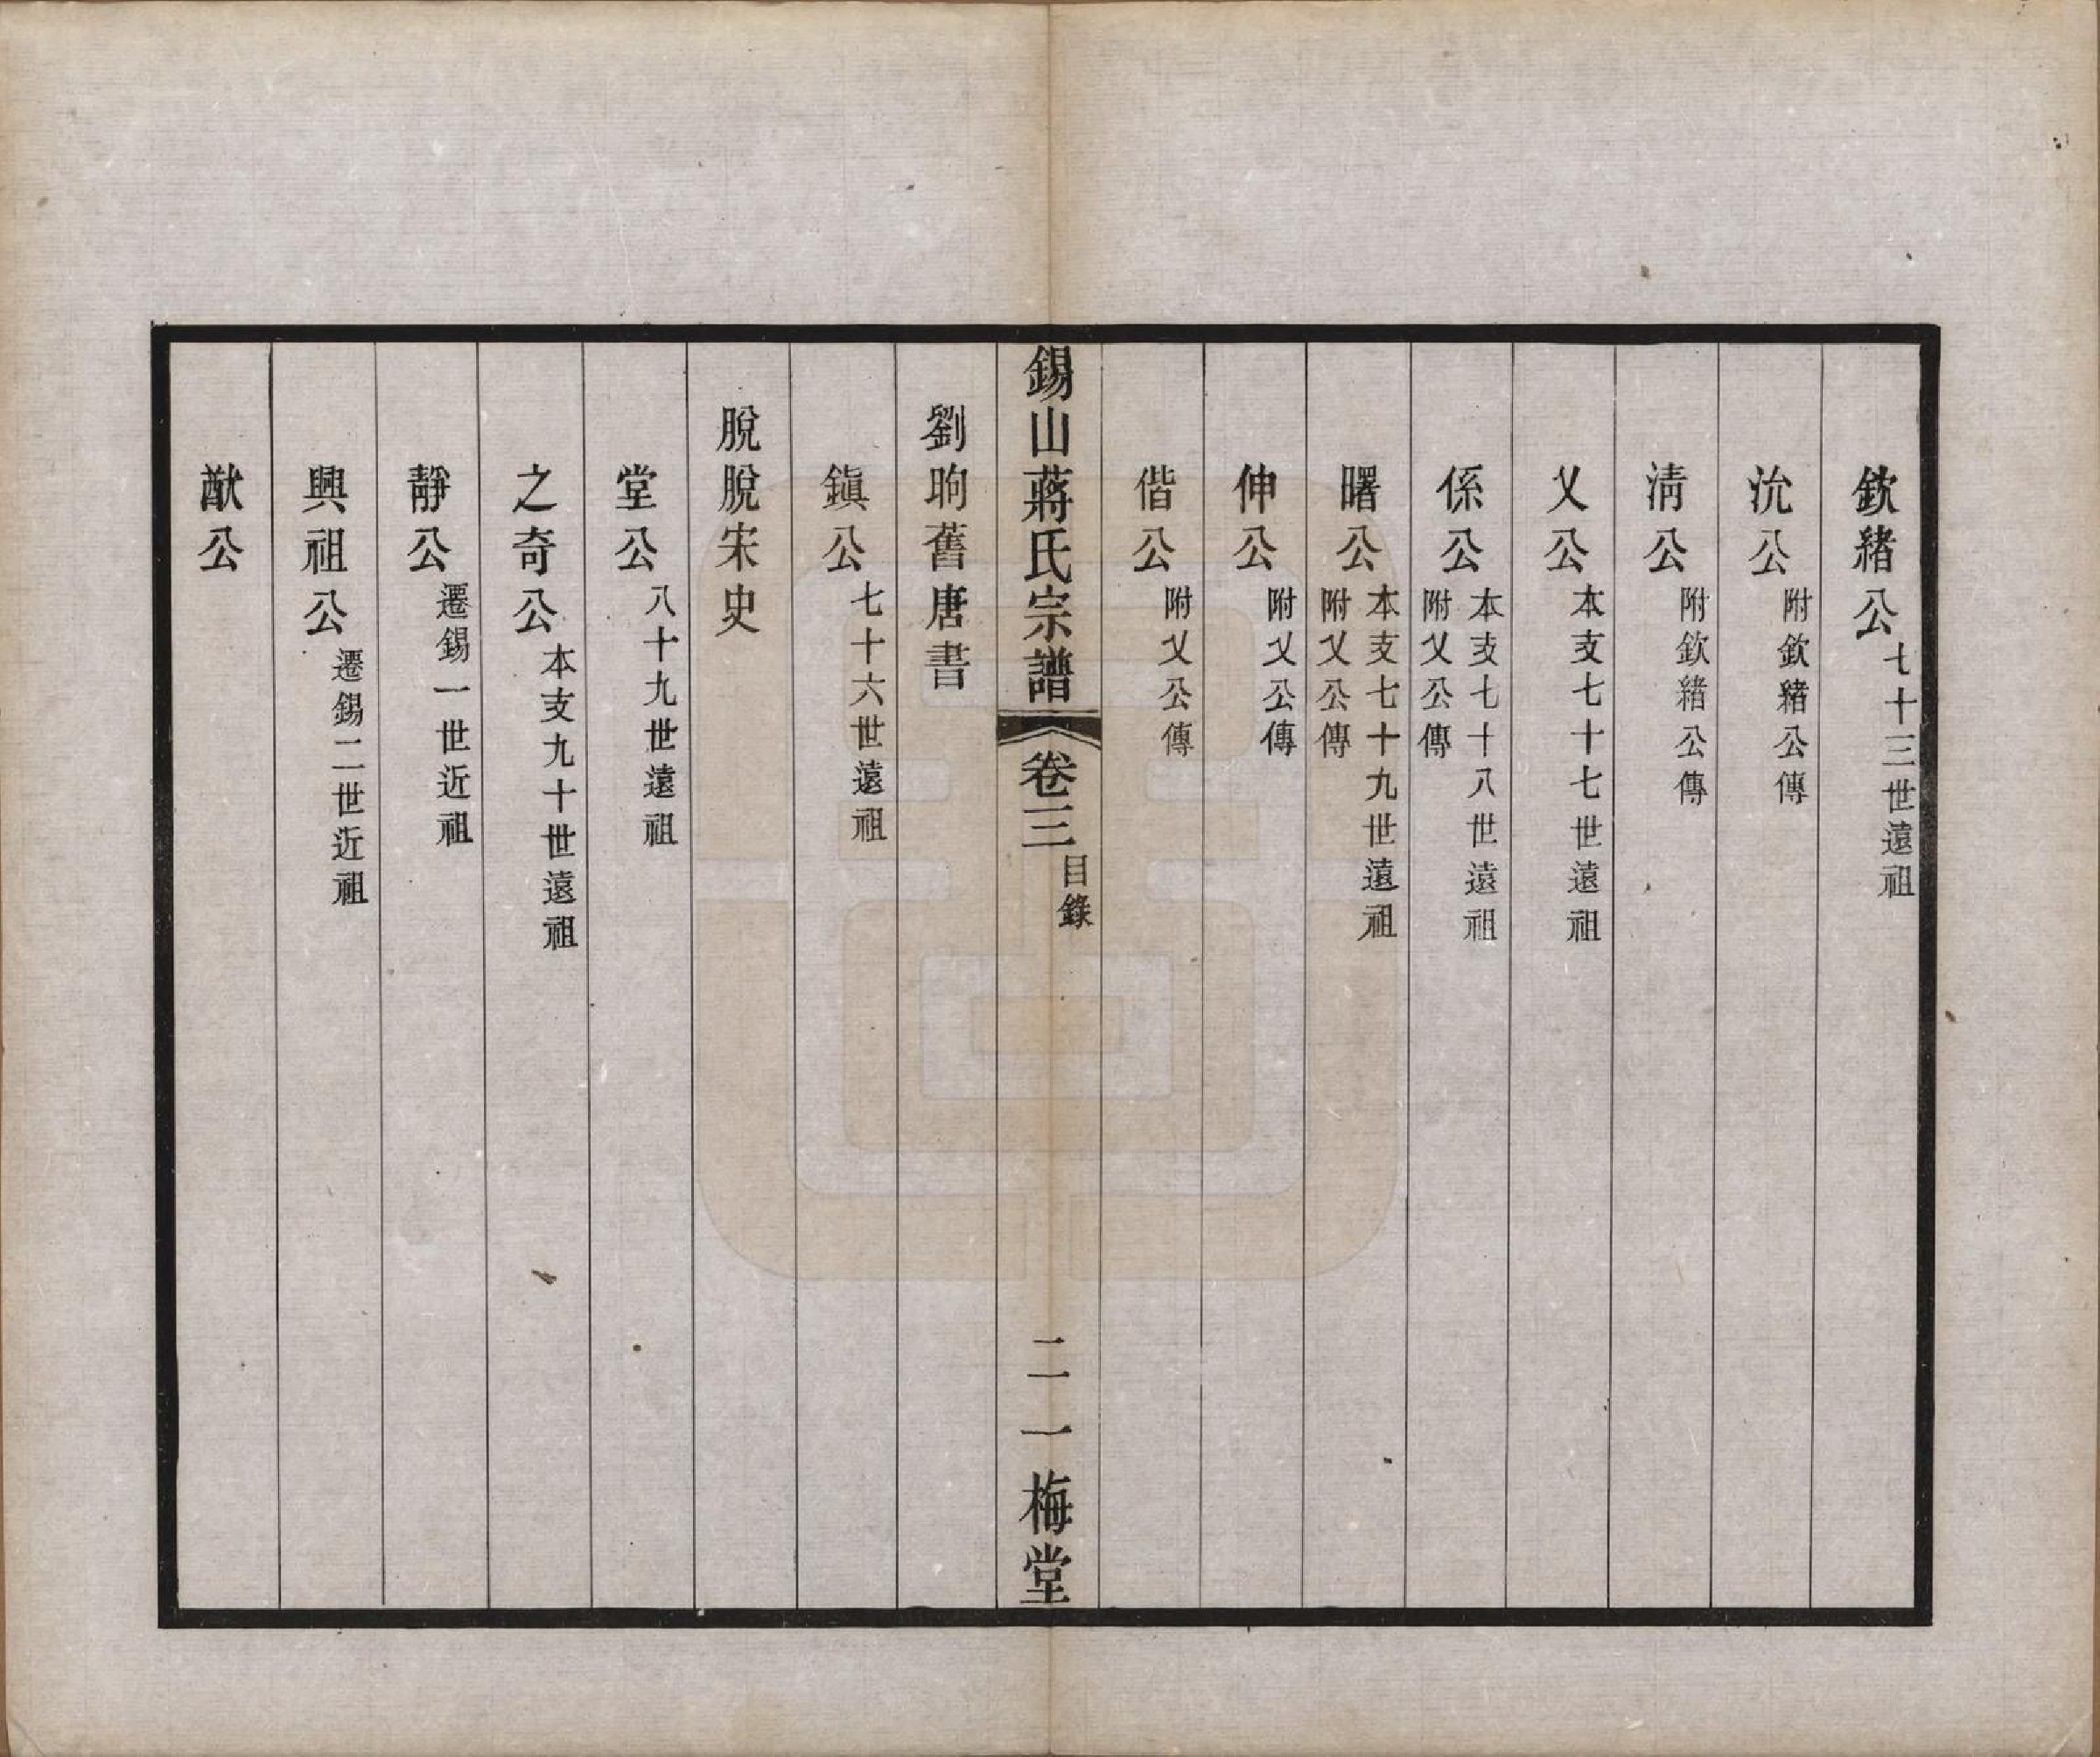 欽緒公七十三世遠祖
沇公附欽緒公傳
清公附欽緒公傳
乂公本支七十七世遠祖
係公本支七十八世遠祖附乂公傳
曙公本支七十九世遠祖附乂公傳
伸公附乂公傳
偕公附乂公傳
錫山蔣氏宗譜 卷三 目錄 二 一梅堂
劉昫舊唐書
鎮公七十六世遠祖
脫脫宋史
堂公八十九世遠祖
之奇公本支九十世遠祖
靜公遷錫一世近祖
興祖公遷錫二世近祖
猷公